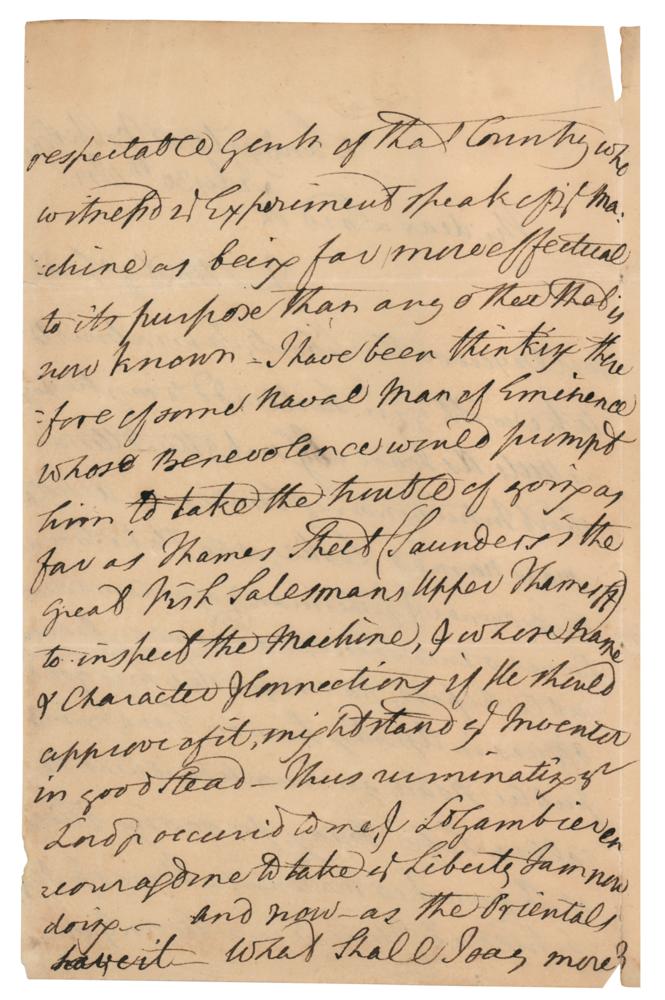 respectable Gentn of that Country who
witness'd ye Experiment speak of ye Ma:
:chine as being far more effectual
to its purpose than any other that is
now known - I have been thinking there
=fore of some Naval Man of Eminence
whose Benevolence would prompt
him to take the trouble of going as
far as Thames Street (Saunders's the
great Fish Salesmans Upper Thames St)
to inspect the Machine, & whose Name
& Character & Connections if He should
approve of it, might stand ye Inventor
in good stead - Thus ruminating yr
Lordp occurid to me, & Ld Gambier en
:couraged me to take ye Liberty I am now
doing - and now - as the Orientals
have it - What shall I say more?